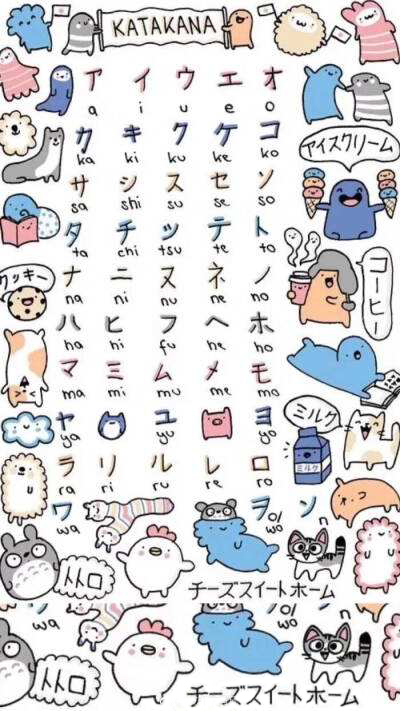 KATAKANA
ア イ ウ エ オ
a i u e o
カ キ ク ケ コ
ka ki ku ke ko
アイスクリーム
サ シ ス セ ソ
sa shi su se so
タ チ ツ テ ト
ta chi tsu te to
クッキー
ナ ニ ヌ ネ ノ
na ni nu ne no
コーヒー
ハ ヒ フ ヘ ホ
ha hi fu he ho
マ ミ ム メ モ
ma mi mu me mo
ヤ ユ ヨ
ya yu yo
ミルク
ミルク
ラ リ ル レ ロ
ra ri ru re ro
ワ ヲ ン
wa o/wo n
トトロ
チーズスイートホーム
o/wo n
トトロ
チーズスイートホーム